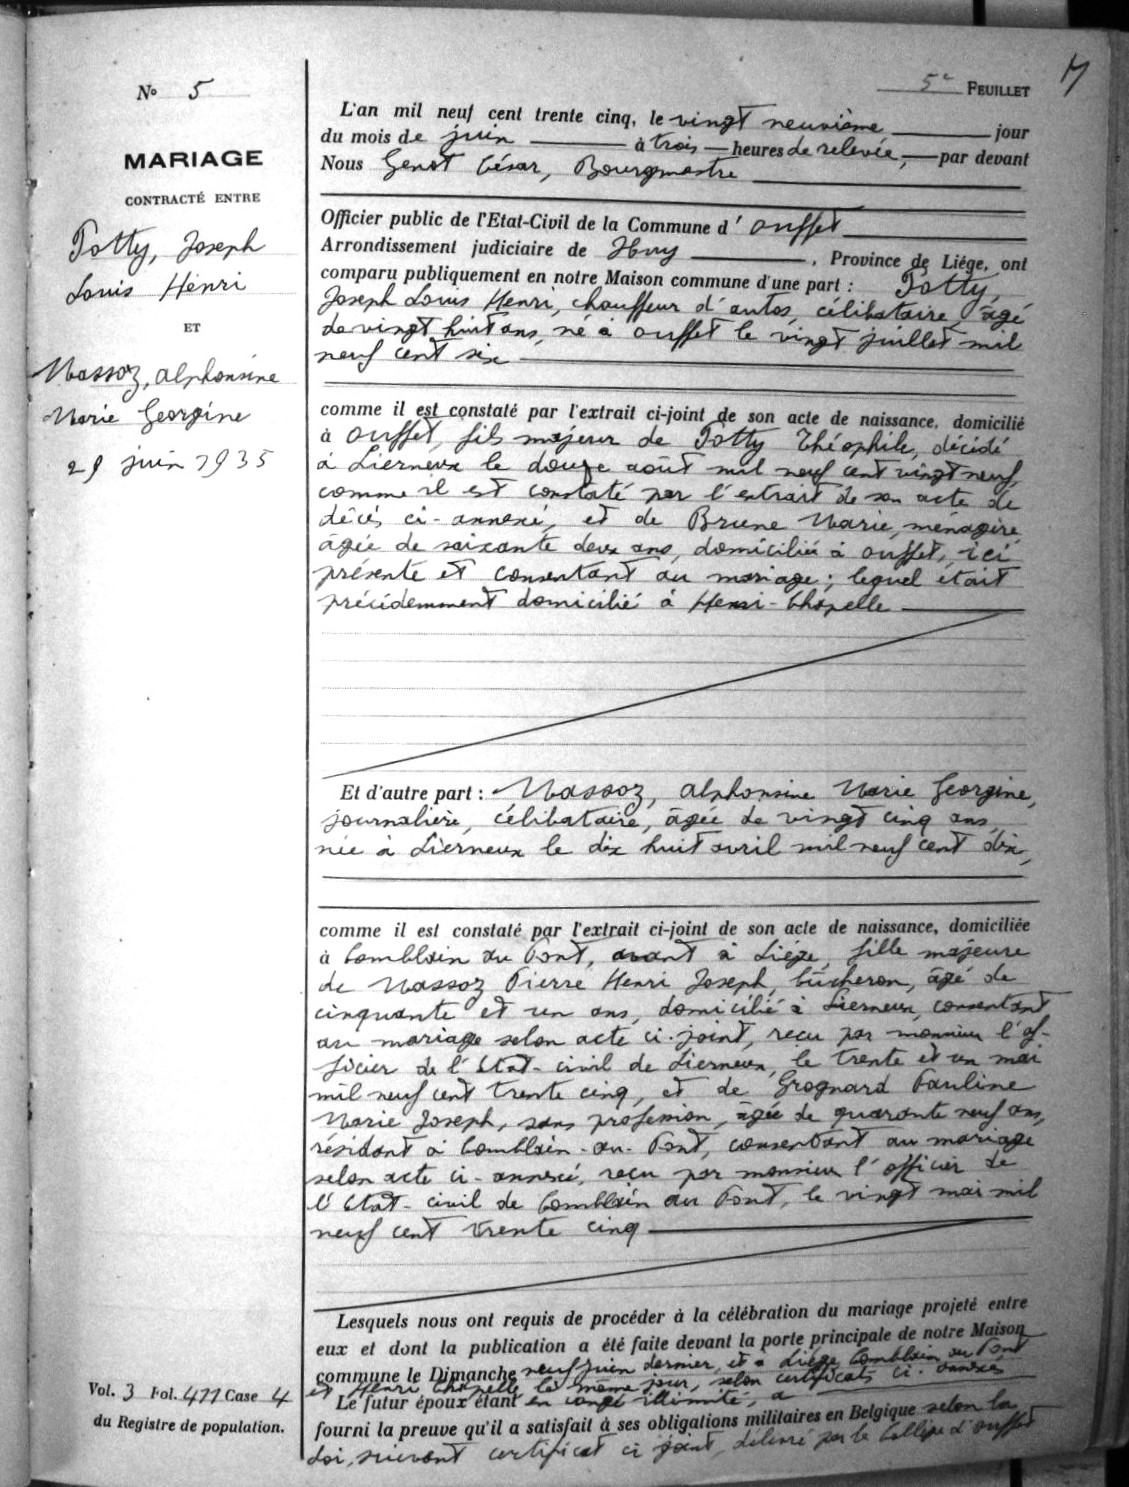 17
5e FEUILLET
No 5
MARIAGE
CONTRACTÉ ENTRE
Potty, Joseph
Louis Henri
ET
Massoz, Alphonsine
Marie Georgine
29 juin 1935
L'an mil neuf cent trente cinq, le vingt neuvième jour
du mois de juin à trois heures de relevée, par devant
Nous Genot César, Bourgmestre
Officier public de l'Etat-Civil de la Commune d'Ouffet
Arrondissement judiciaire de Huy, Province de Liége, ont
comparu publiquement en notre Maison commune d'une part : Potty,
Joseph Louis Henri, chauffeur d'autos, célibataire, âgé
de vingt huit ans, né à Ouffet le vingt juillet mil
neuf cent six
comme il est constaté par l'extrait ci-joint de son acte de naissance, domicilié
à Ouffet, fils majeur de Potty Théophile, décédé
à Lierneux le douze août mil neuf cent vingt neuf,
comme il est constaté par l'extrait de son acte de
décés ci-annexé, et de Brune Marie, ménagère
âgée de soixante deux ans, domiciliée à Ouffet, ici
présente et consentant au mariage ; lequel était
précédemment domicilié à Henri-Chapelle
Et d'autre part : Massoz, Alphonsine Marie Georgine,
journalière, célibataire, âgée de vingt cinq ans,
née à Lierneux le dix huit avril mil neuf cent dix,
comme il est constaté par l'extrait ci-joint de son acte de naissance, domiciliée
à Comblain au Pont, avant à Liége, fille majeure
de Massoz Pierre Henri Joseph, bûcheron, âgé de
cinquante et un ans, domicilié à Lierneux, consentant
au mariage selon acte ci-joint, reçu par monsieur l'of-
ficier de l'Etat-civil de Lierneux, le trente et un mai
mil neuf cent trente cinq, et de Grognard Pauline
Marie Joseph, sans profession, âgée de quarante neuf ans,
résidant à Comblain-au-Pont, consentant au mariage
selon acte ci-annexé, reçu par monsieur l'officier de
l'Etat-civil de Comblain au Pont, le vingt mai mil
neuf cent trente cinq
Lesquels nous ont requis de procéder à la célébration du mariage projeté entre
eux et dont la publication a été faite devant la porte principale de notre Maison
commune le Dimanche neuf juin dernier, et à Liége, Comblain au Pont
et Henri Chapelle le même jour, selon certificats ci-annexés
Le futur époux étant en congé illimité, a
fourni la preuve qu'il a satisfait à ses obligations militaires en Belgique selon la
loi, suivant certificat ci joint, délivré par le Collège d'Ouffet
Vol. 3 Fol. 411 Case 4
du Registre de population.